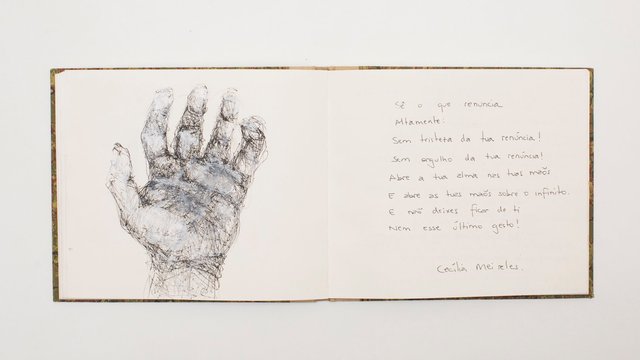 Sê o que renuncia
Altamente:
Sem tristeza da tua renúncia!
Sem orgulho da tua renúncia!
Abre a tua alma nas tuas mãos
E abre as tuas mãos sobre o infinito.
E não deixes ficar de ti
Nem esse último gesto!
Cecília Meireles.